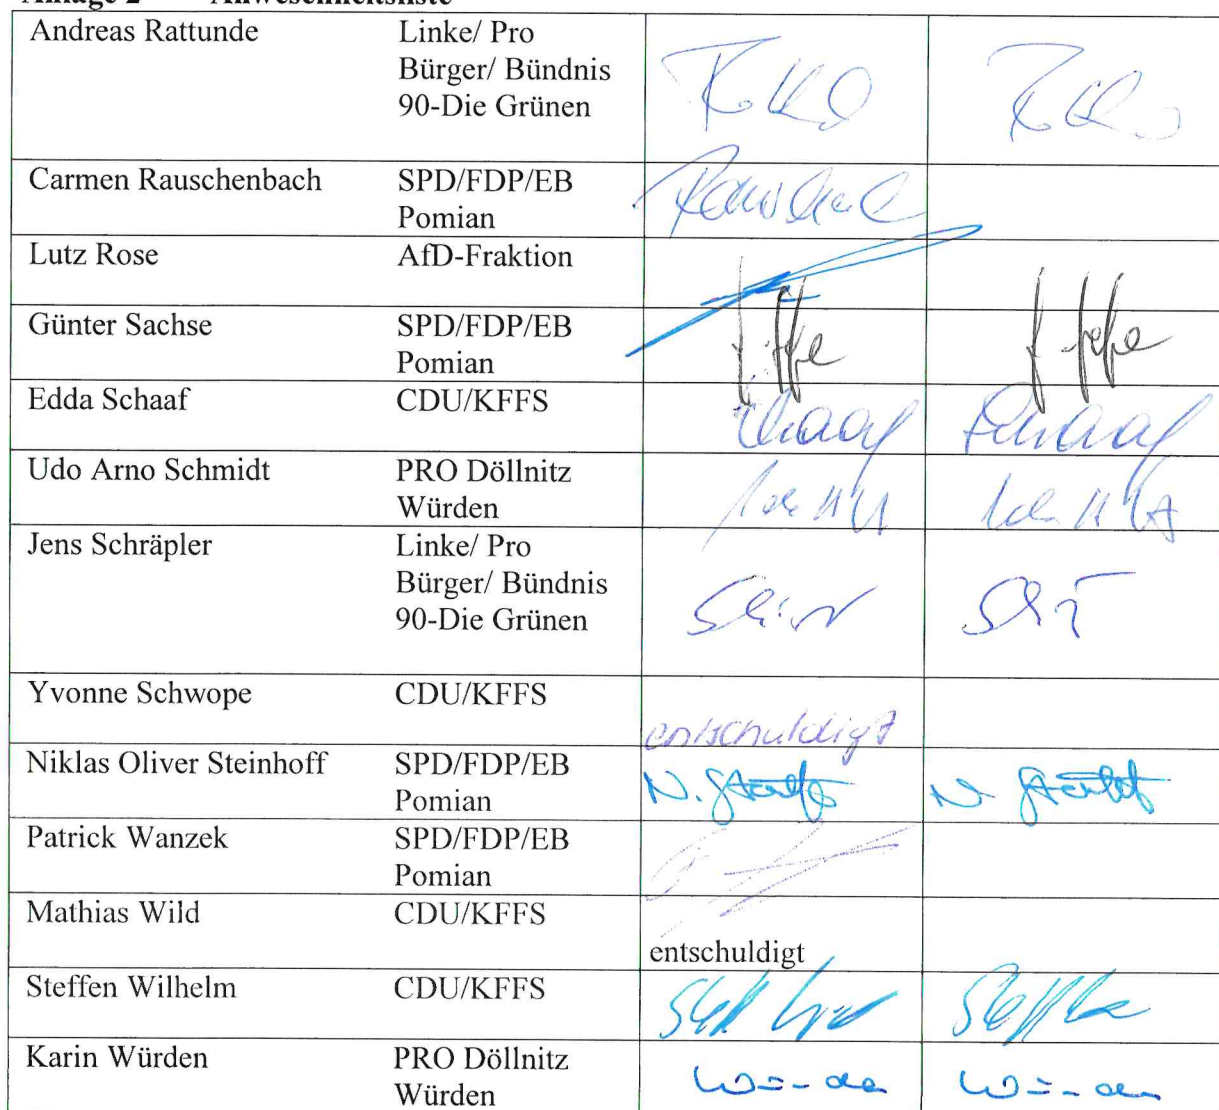 Anlage 2 Anwesenheitsliste
Andreas Rattunde Linke/ Pro
Bürger/ Bündnis
90-Die Grünen
Carmen Rauschenbach SPD/FDP/EB
Pomian
Lutz Rose AfD-Fraktion
Günter Sachse SPD/FDP/EB
Pomian
Edda Schaaf CDU/KFFS
Udo Arno Schmidt PRO Döllnitz
Würden
Jens Schräpler Linke/ Pro
Bürger/ Bündnis
90-Die Grünen
Yvonne Schwope CDU/KFFS
entschuldigt
Niklas Oliver Steinhoff SPD/FDP/EB
Pomian
Patrick Wanzek SPD/FDP/EB
Pomian
Mathias Wild CDU/KFFS
entschuldigt
Steffen Wilhelm CDU/KFFS
Karin Würden PRO Döllnitz
Würden